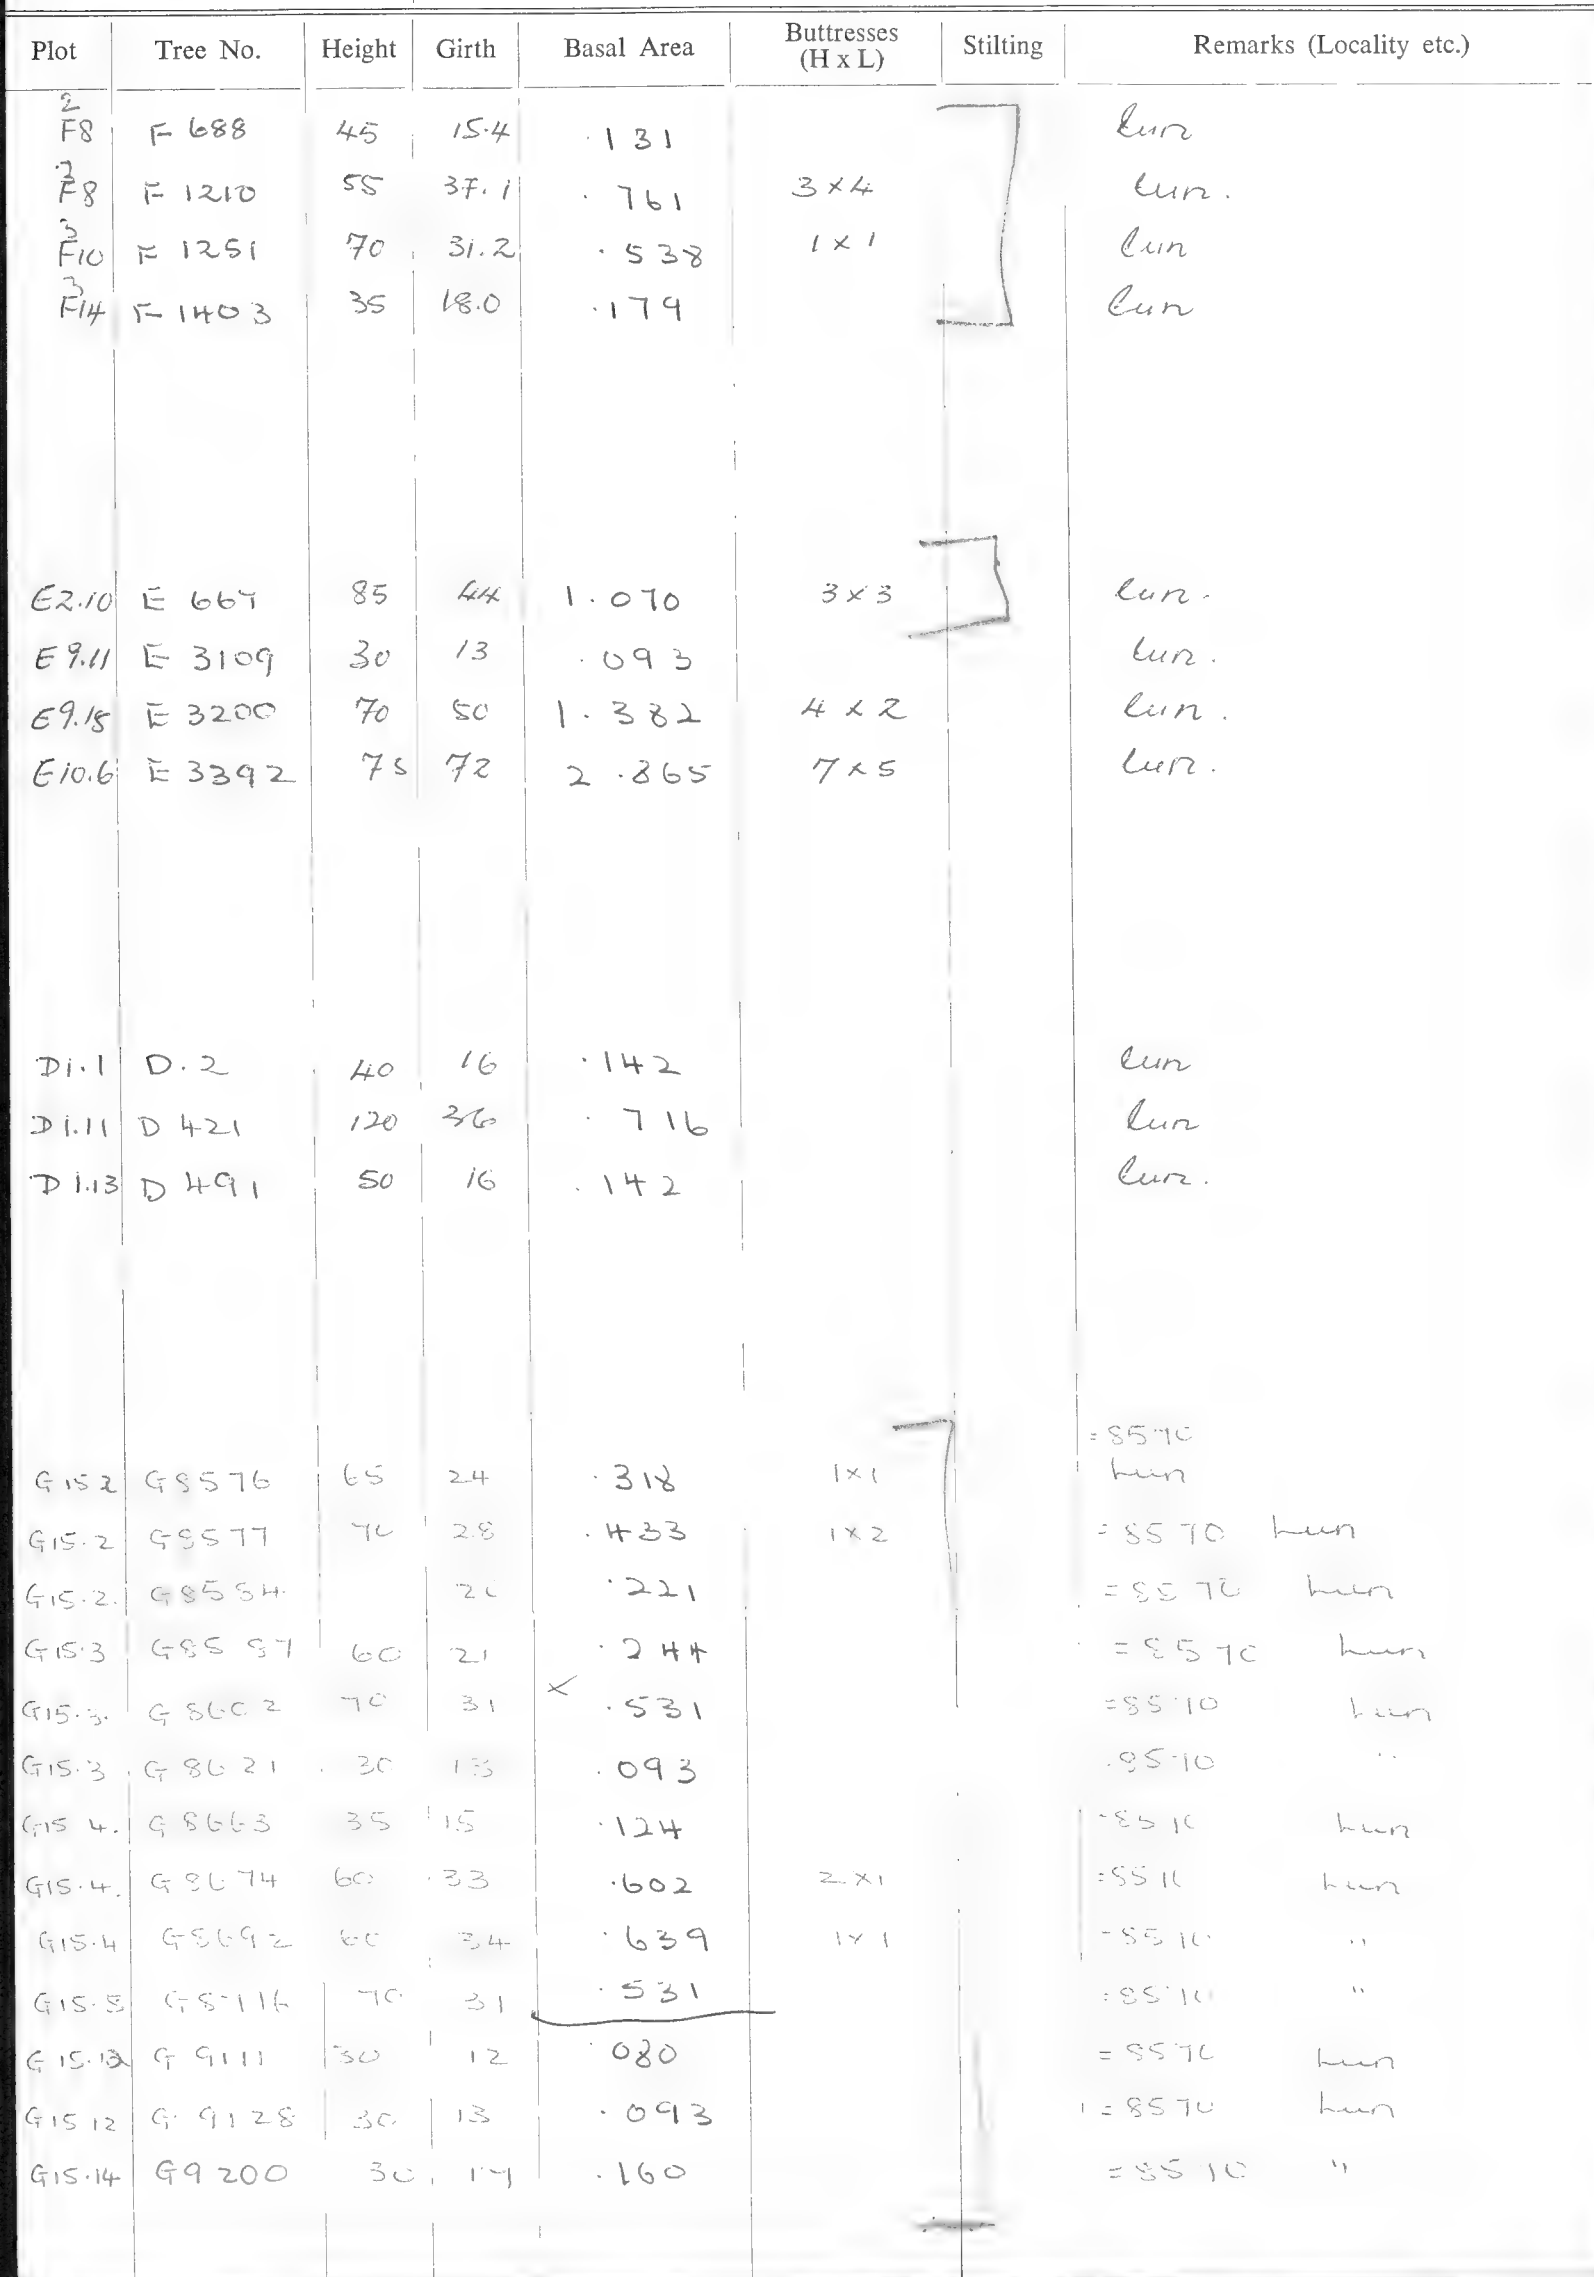 Plot Tree No. Height Girth Basal Area Buttresses (H x L) Stilting Remarks (Locality etc.)
2
F8 F 688 45 15.4 .131 lun
3
F8 F 1210 55 37.1 .761 3 x 4 lun.
3
F10 F 1251 70 31.2 .538 1 x 1 lun
3
F14 F 1403 35 18.0 .179 lun
E2.10 E 667 85 44 1.070 3 x 3 lun.
E9.11 E 3109 30 13 .093 lun.
E9.18 E 3200 70 50 1.382 4 x 2 lun.
E10.6 E 3392 75 72 2.865 7 x 5 lun.
D1.1 D.2 40 16 .142 lun
D1.11 D 421 120 36 .716 lun
D1.13 D 491 50 16 .142 lun.
= 8570
G15.2 G8576 65 24 .318 1 x 1 lun
G15.2 G8577 70 28 .433 1 x 2 = 8570 lun
G15.2. G8584 20 .221 = 8570 lun
G15.3 G8587 60 21 .244 = 8570 lun
G15.3. G8602 70 31 x .531 = 8570 lun
G15.3 G8621 30 13 .093 .8570 "
G15 4. G8663 35 15 .124 = 8570 lun
G15.4. G8674 60 33 .602 2 x 1 = 8570 lun
G15.4 G8692 60 34 .639 1 x 1 = 8570 "
G15.5 G8716 70 31 .531 = 8570 "
G15.12 G9111 30 12 .080 = 8570 lun
G15 12 G.9128 30 13 .093 = 8570 lun
G15.14 G9200 30 17 .160 = 8570 "